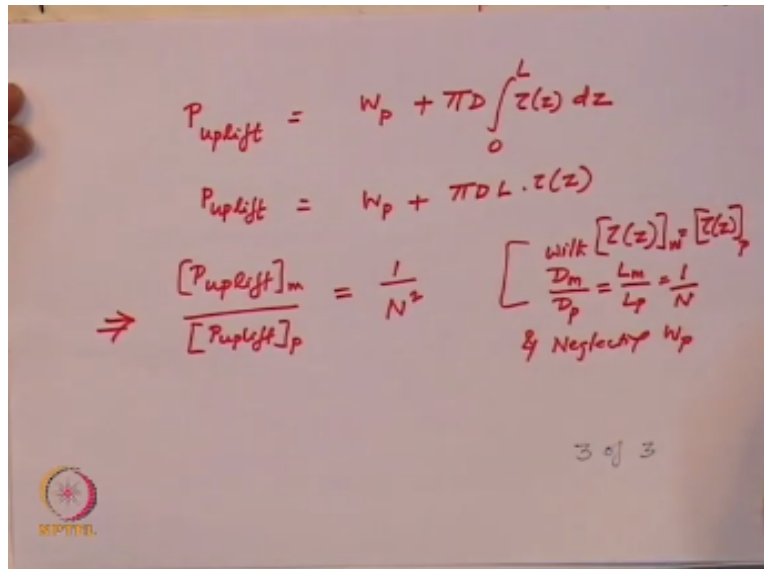 P_uplift = W_p + πD ∫₀ᴸ τ(z) dz
P_uplift = W_p + πDL . τ(z)
⇒ [P_uplift]_m / [P_uplift]_p = 1 / N²
[ with [τ(z)]_m = [τ(z)]_p
D_m / D_p = L_m / L_p = 1 / N
& Neglecting W_p
3 of 3
NPTEL